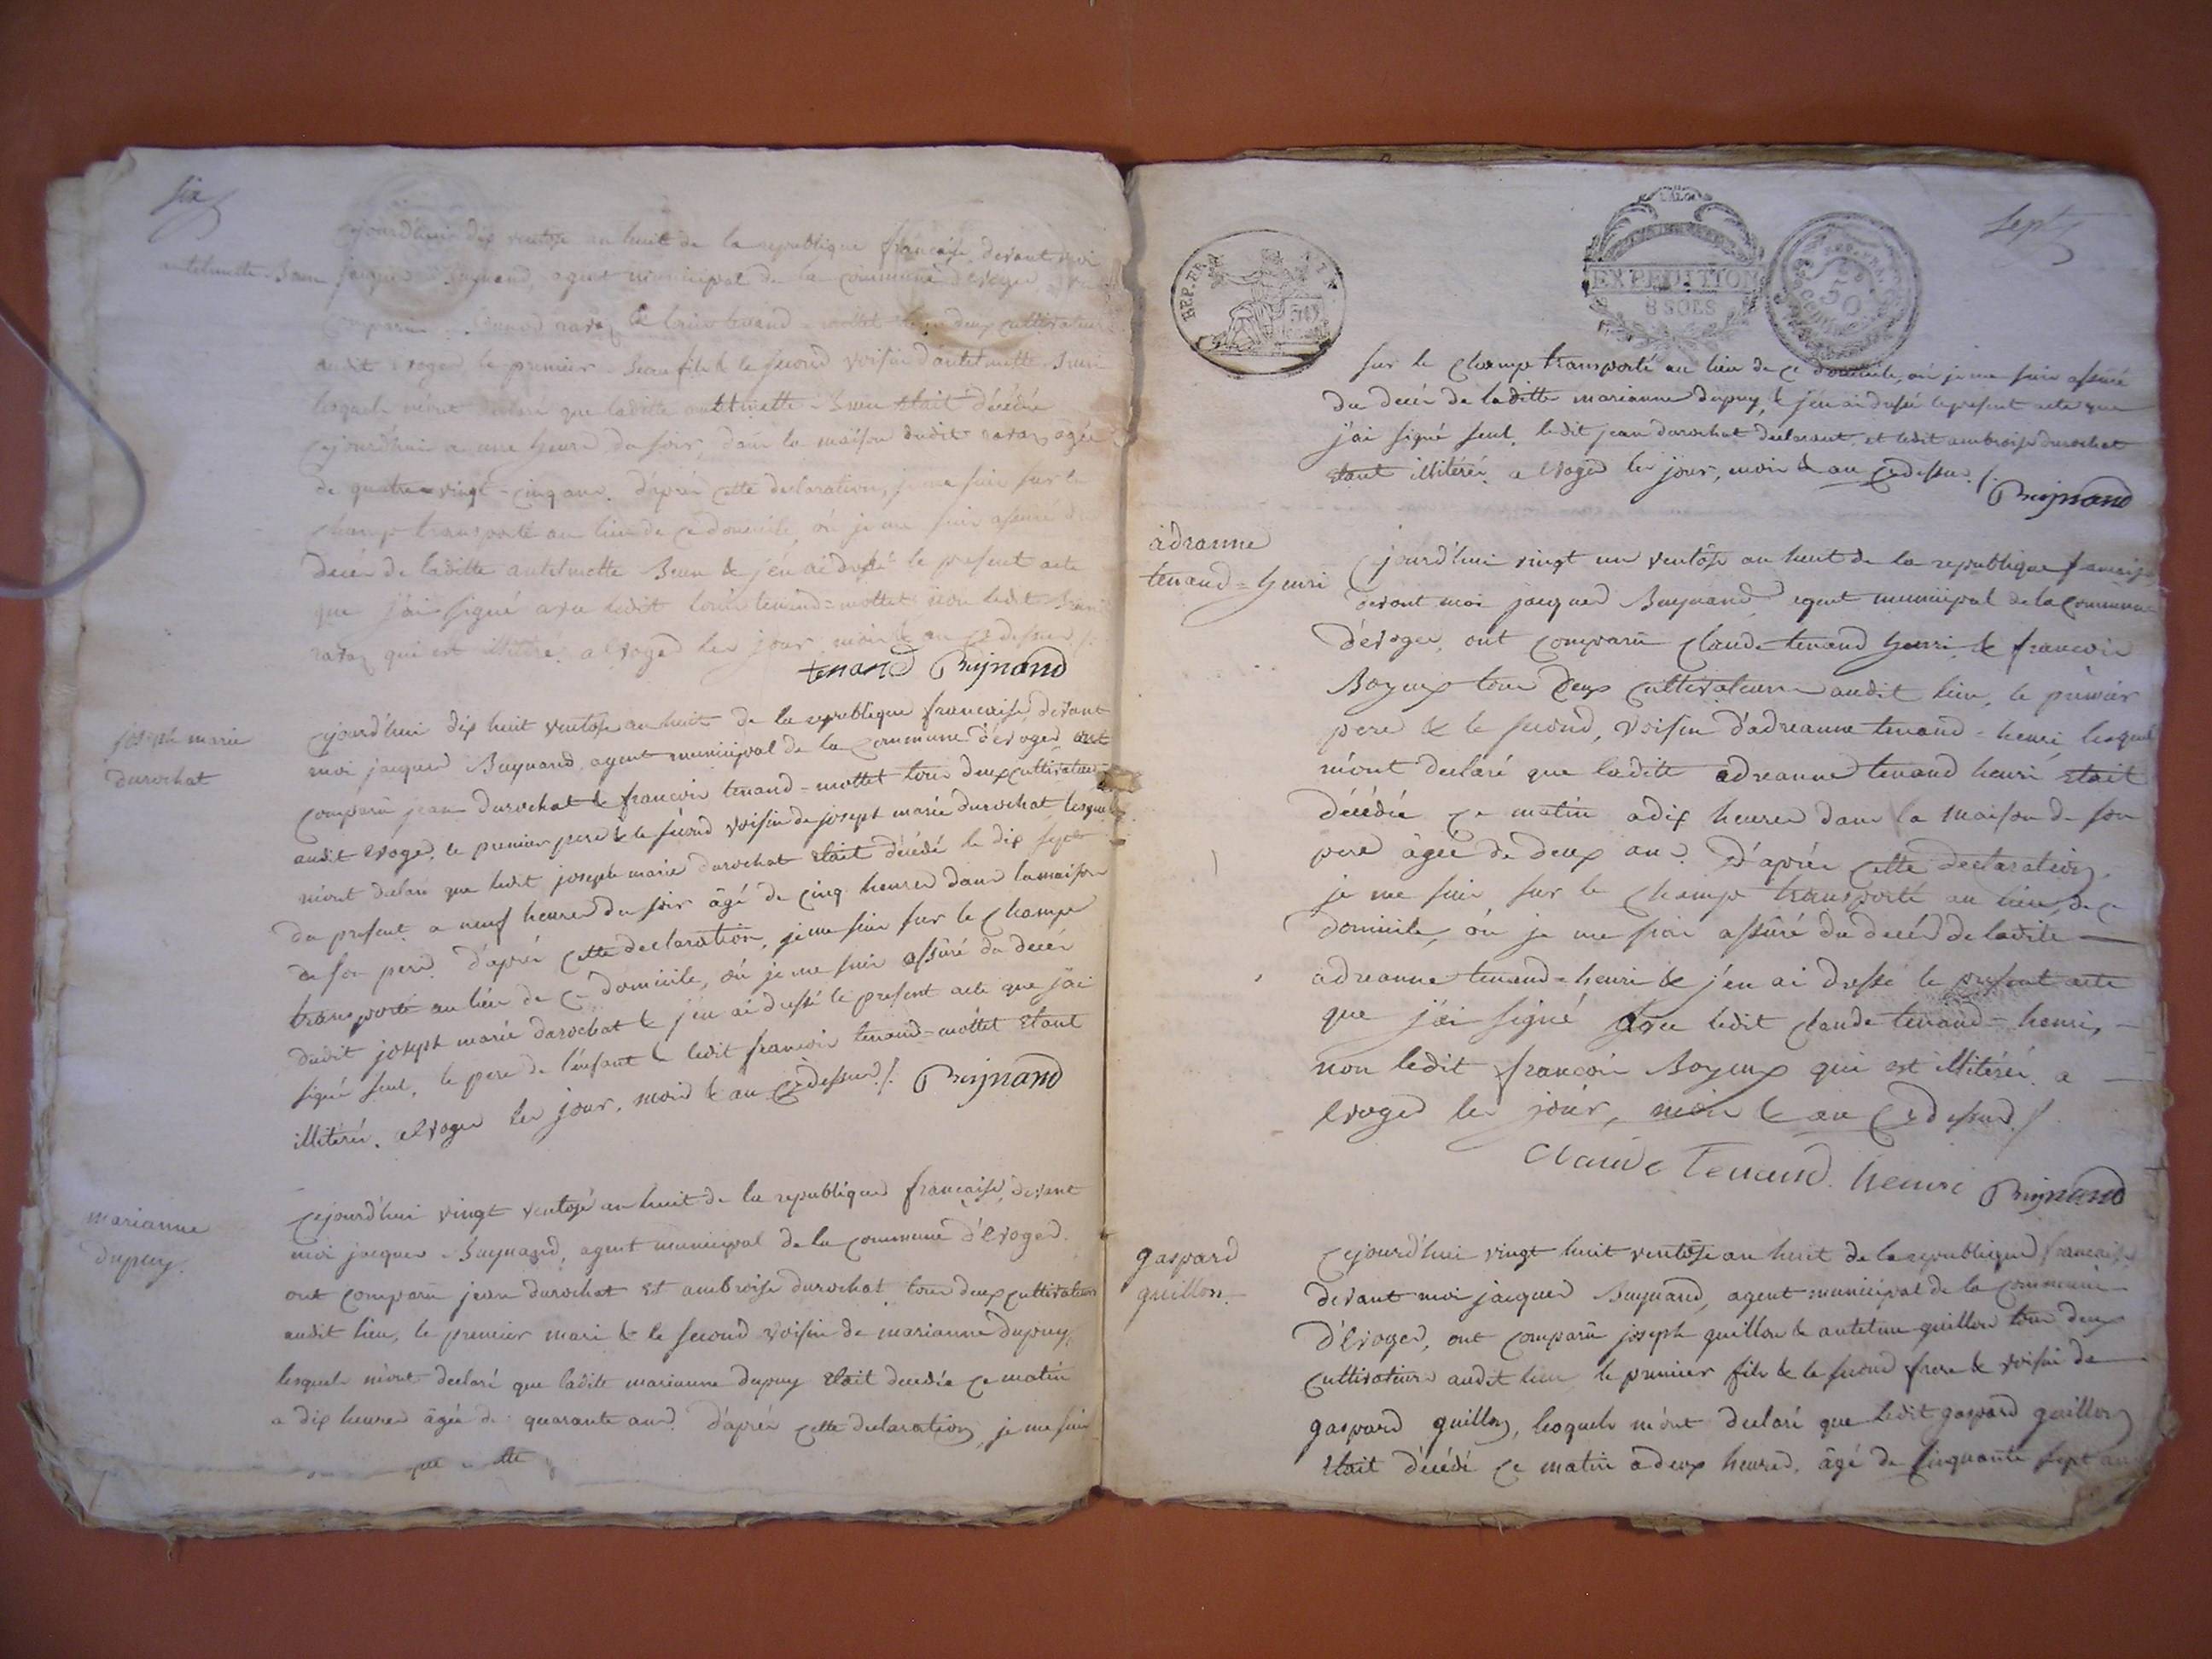 six
antelmette Brun
cejourd'hui dix ventose an huit de la republique francaise, devant moi
jacques Buynand, agent municipal de la commune d'evoges, ont
comparu ravaz & louis tenand-mottet tous deux cultivateurs
audit evoges, le premier Beaufils & le second voisin d'antelmette Brun
lesquels m'ont declaré que laditte antelmette Brun etait décédée
cejourd'hui a une heure du soir, dans la maison dudit ravaz agée
de quatre vingt-cinq ans. d'après cette declaration, je me suis sur le
champs transporté au lieu de ce domicile, où je me suis assuré du
decès de laditte antelmette Brun & j'en ai dressé le present acte
que j'ai signé avec ledit louis tenand-mottet non ledit
ravaz qui est illitéré. a Evoges les jour, mois & an cy dessus /.
tenand Buynand
joseph marie
durochat
Cejourd'hui dix huit ventose an huit de la republique francaise, devant
moi jacques Buynand, agent municipal de la commune d'évoges ont
comparu jean durochat & francois tenand-mottet tous deux cultivateurs
audit evoges, le premier pere & le second voisin de joseph marie durochat, lesquels
m'ont declaré que ledit joseph marie durochat etait décédé le dix sept
du present a neuf heures du soir âgé de cinq heures dans la maison
de son pere. d'après cette declaration, je me suis sur le champs
transporté au lieu de ce domicile, où je me suis assuré du decès
dudit joseph marie durochat & j'en ai dressé le present acte que j'ai
signé seul, le pere de l'enfant & ledit francois tenand-mottet etant
illitérés. a Evoges les jour, mois & an cy dessus /. Buynand
marianne
dupuy.
Cejourd'hui vingt ventose an huit de la republique francaise, devant
moi jacques Buynand, agent municipal de la commune d'Evoges.
ont comparu jean durochat et ambroise durochat tous deux cultivateurs
audit lieu, le premier mari & le second voisin de marianne dupuy,
lesquels m'ont declaré que laditte marianne dupuy etait decedée ce matin
a dix heures âgée de quarante ans. d'après cette declaration, je me suis
sept
REP. FRA
50
EXPEDITION
8 SOLS
50
sur le champs transporté au lieu de ce domicile, où je me suis assuré
du decès de laditte marianne dupuy, & j'en ai dressé le present acte que
j'ai signé seul, ledit jean durochat declarant, et ledit ambroise durochat
etant illitérés. a Evoges les jour, mois & an cy dessus /.
Buynand
adranne
tenand=henri
Cejourd'hui vingt un ventose an huit de la republique francaise
devant moi jacques Buynand, agent municipal de la commune
d'evoges, ont comparu Claude tenand henri & francois
Boyeux tous deux cultivateurs audit lieu, le premier
pere & le second, voisin d'adreanne tenand-henri lesquels
m'ont declaré que laditte adreanne tenand henri etait
décédée ce matin a dix heures dans la maison de son
pere âgée de deux ans. d'après cette declaration,
je me suis sur le champs transporté au lieu de ce
domicile, où je me suis assuré du decès de ladite
adreanne tenand=henri & j'en ai dressé le present acte
que j'ai signé avec ledit claude tenand-henri,
non ledit francois Boyeux qui est illitéré. a
Evoges les jour, mois & an cy dessus /.
Claude Tenand. henri Buynand
gaspard
guillon
Cejourd'hui vingt huit ventose an huit de la republique francaise,
devant moi jacques Buynand, agent municipal de la commune
d'Evoges, ont comparu joseph guillon & antelme guillon tous deux
cultivateurs audit lieu le premier fils & le second frere & voisin de
gaspard guillon, lesquels m'ont declaré que ledit gaspard guillon
etait décédé ce matin a deux heures, âgé de cinquante sept ans